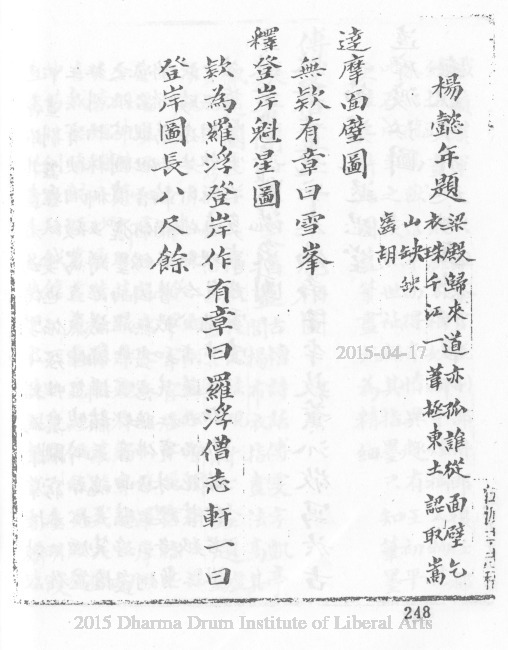 楊懿年題
梁殿歸來道亦孤誰從面壁乞
衣珠千江一葦拯東土認取嵩
山缺缺
齒胡
達摩面壁圖
無欵有章曰雪峯
釋登岸魁星圖
欵為羅浮登岸作有章曰羅浮僧志軒一曰
登岸圖長八尺餘
2015-04-17
248
2015 Dharma Drum Institute of Liberal Arts